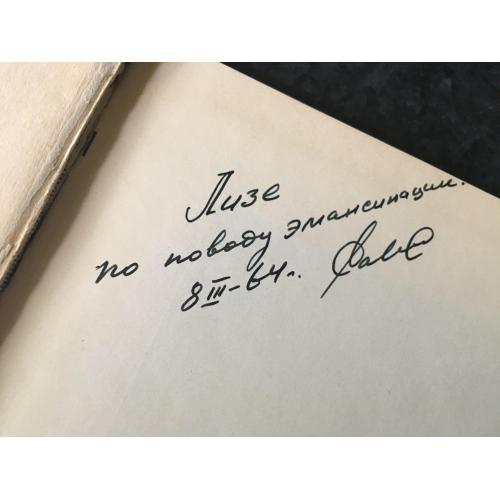 Лизе
по поводу эмансипации.
8 III-64 г.